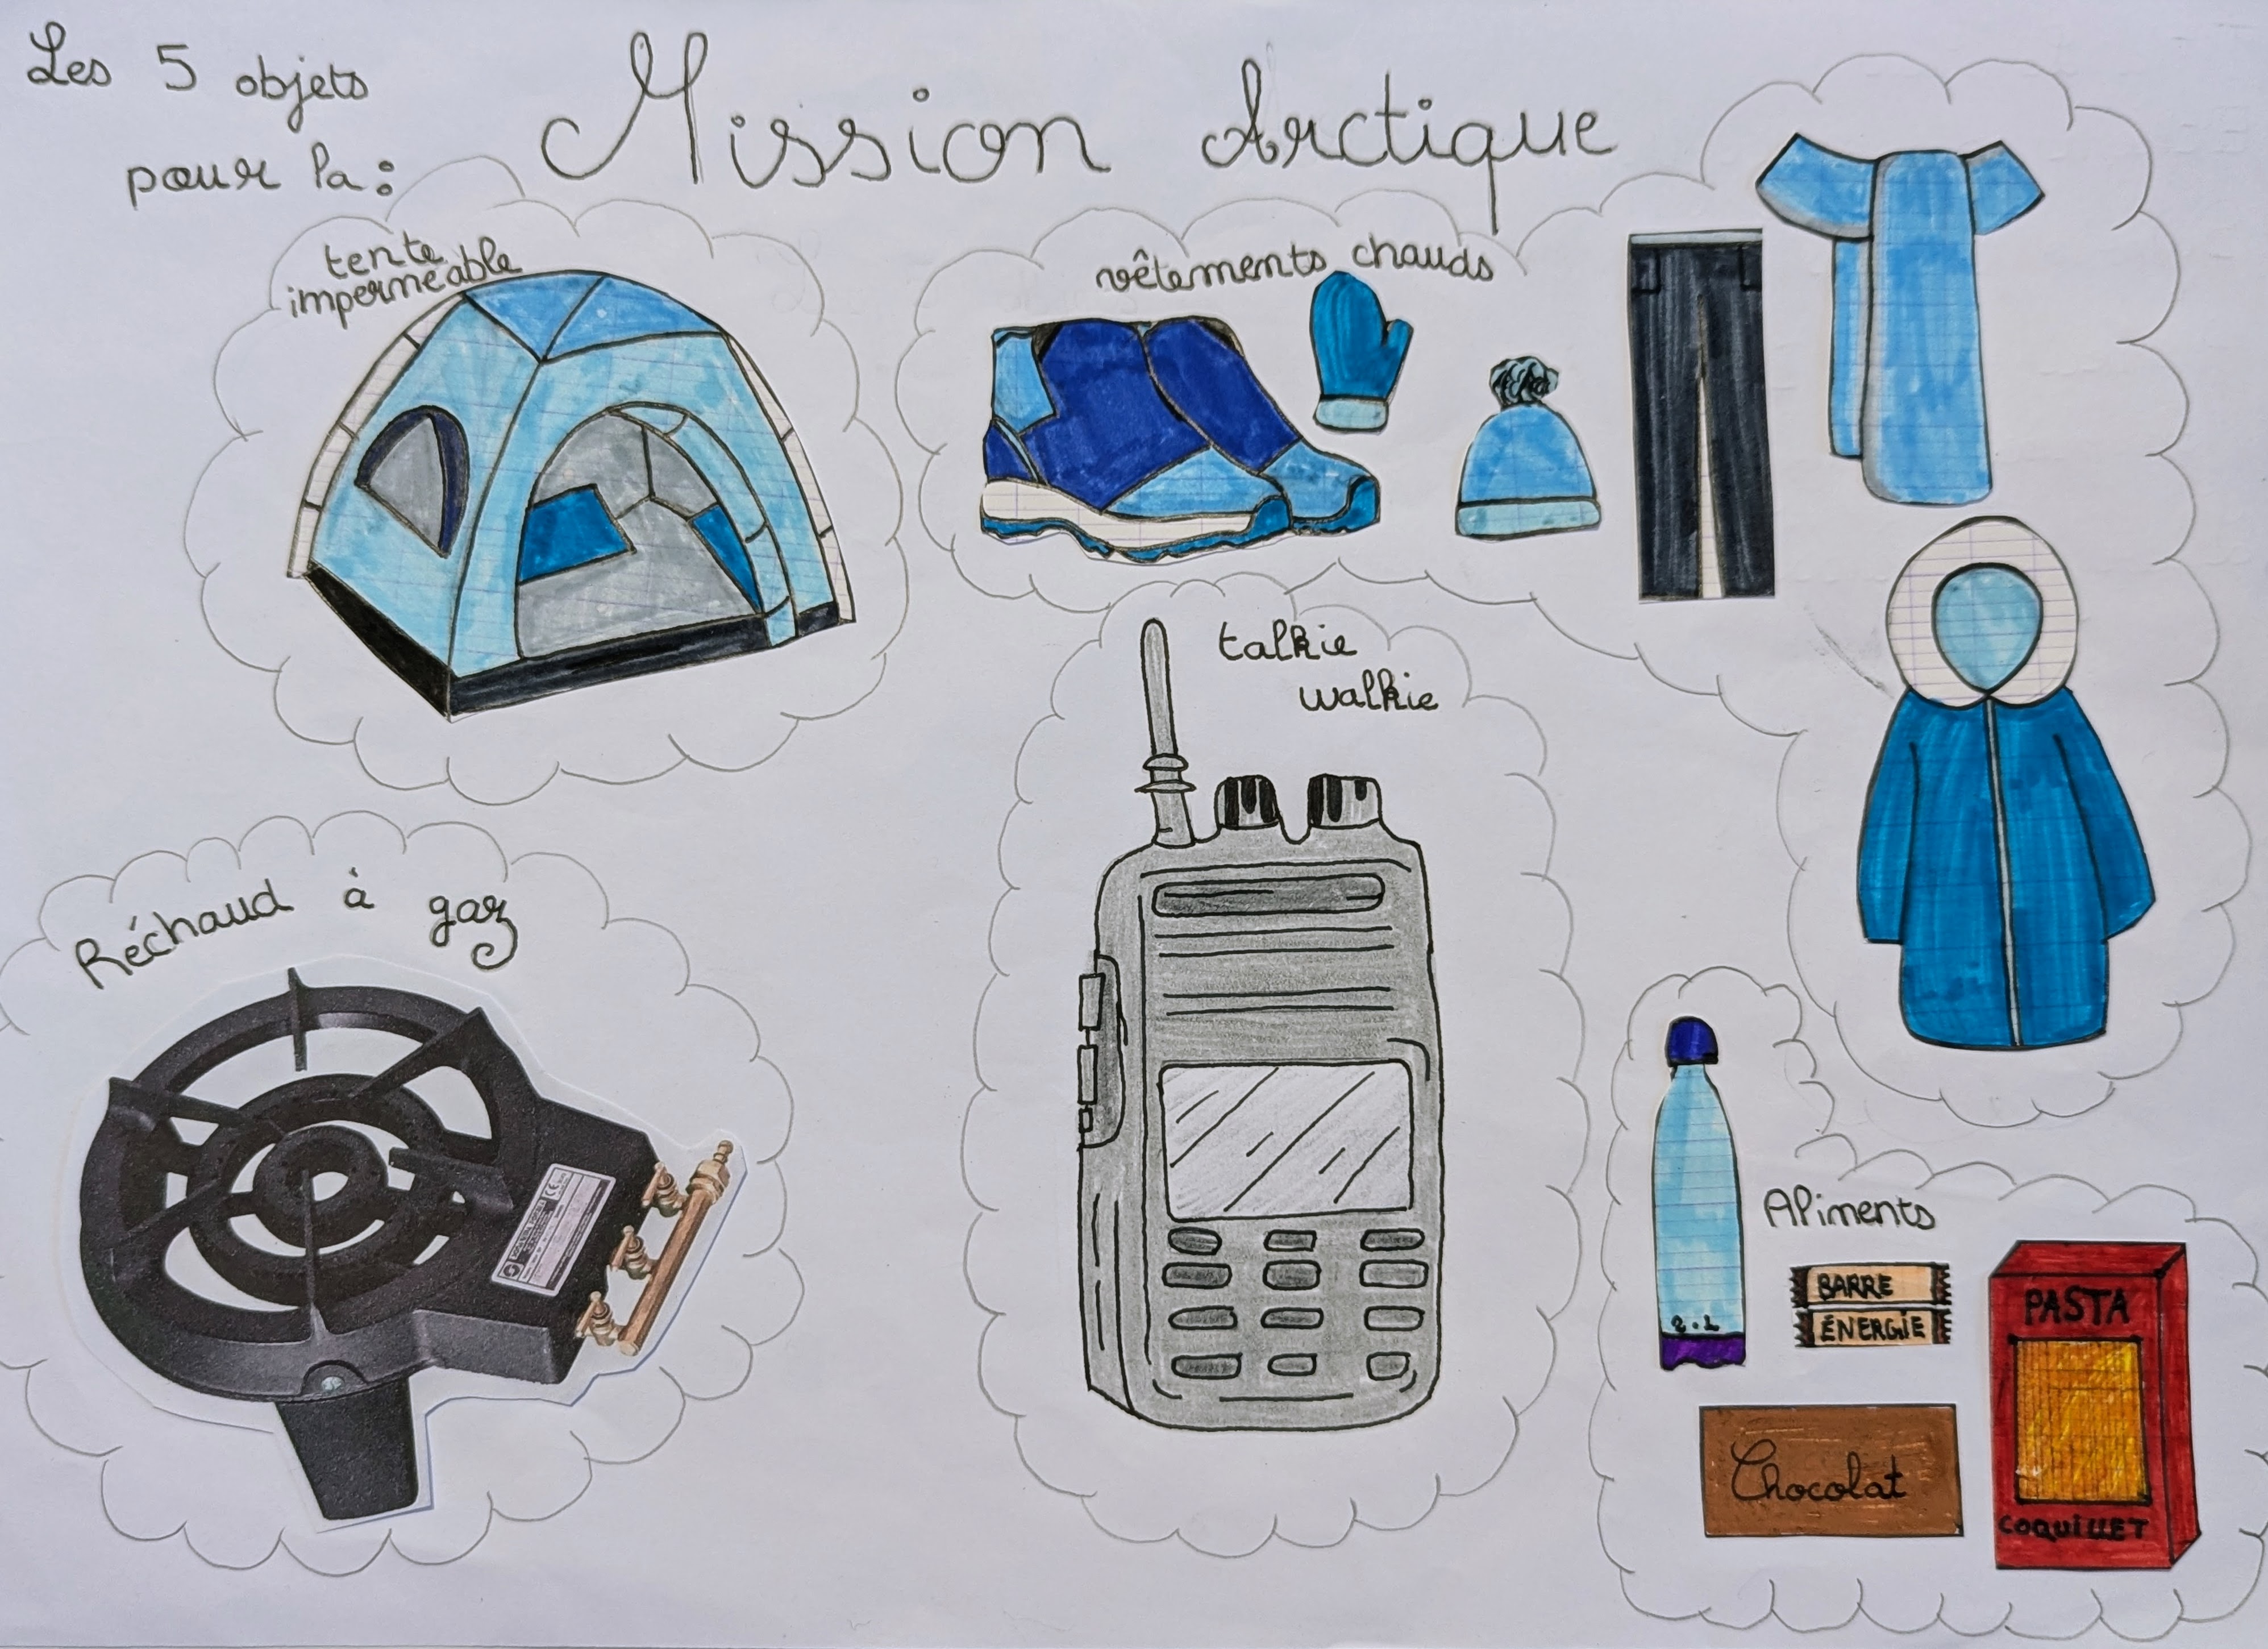 Les 5 objets
pour la :
Mission Arctique
tente
imperméable
vêtements chauds
talkie
walkie
Réchaud à gaz
Aliments
BARRE
ÉNERGIE
PASTA
COQUILLET
Chocolat
CE